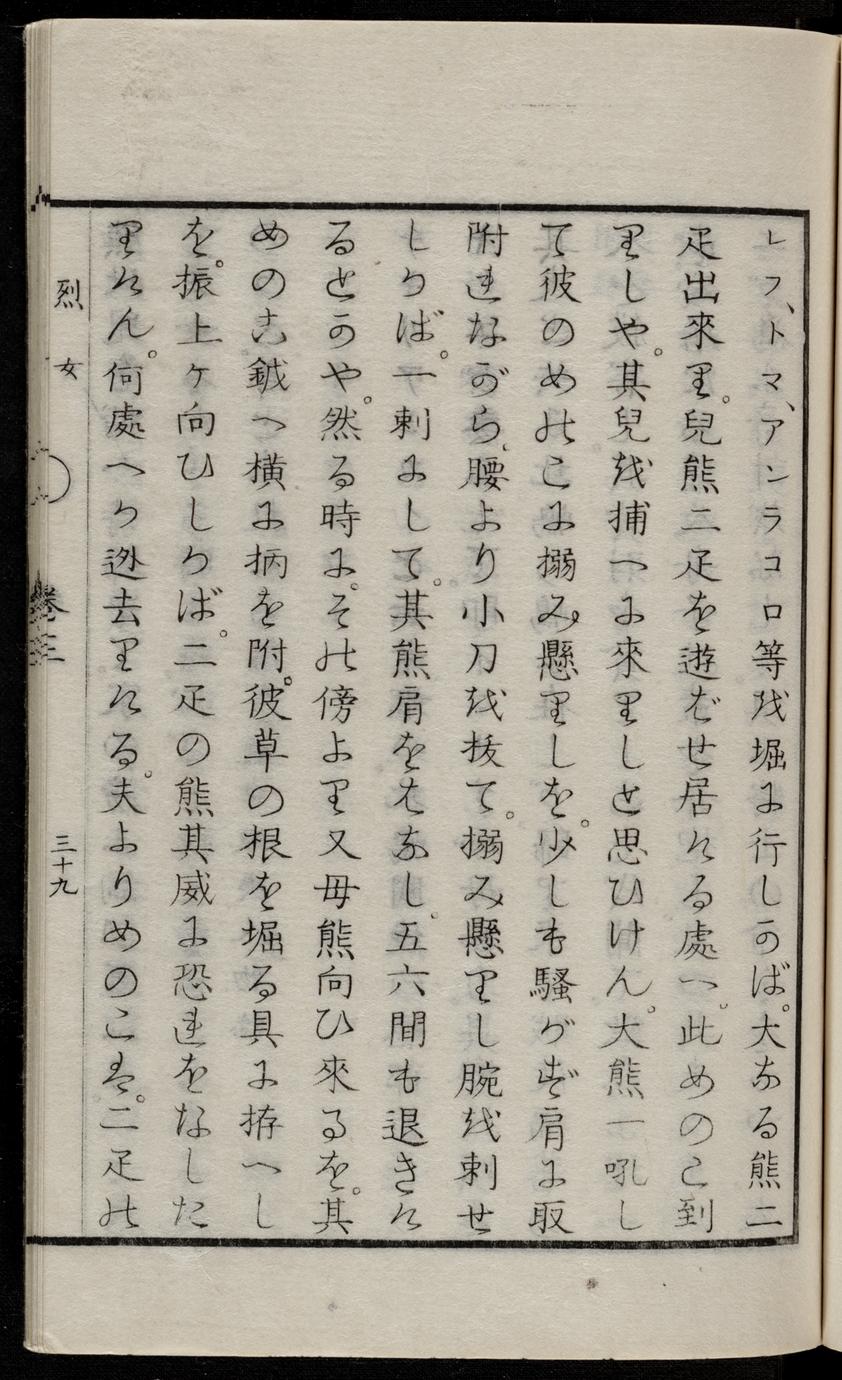 レフ、トマ、アンラコロ等を堀に行しかば。大なる熊二
疋出來り。兒熊二疋を遊ばせ居ける處へ。此めのこ到
りしや。其兒を捕へに來りしと思ひけん。大熊一吼し
て彼のめのこに搦み懸りしを。少しも騒がず肩に取
附れながら、腰より小刀を拔て。搦み懸りし腕を刺せ
しかば。一刺にして。其熊肩をはなし。五六間も退きけ
るとかや。然る時に。その傍より又母熊向ひ來るを。其
めのこ鉞へ横に柄を附。彼草の根を堀る具に拵へし
を。振上ケ向ひしかば。二疋の熊其威に恐れをなした
りけん。何處へか迯去りける。夫よりめのこは。二疋の
烈女
卷三
三十九